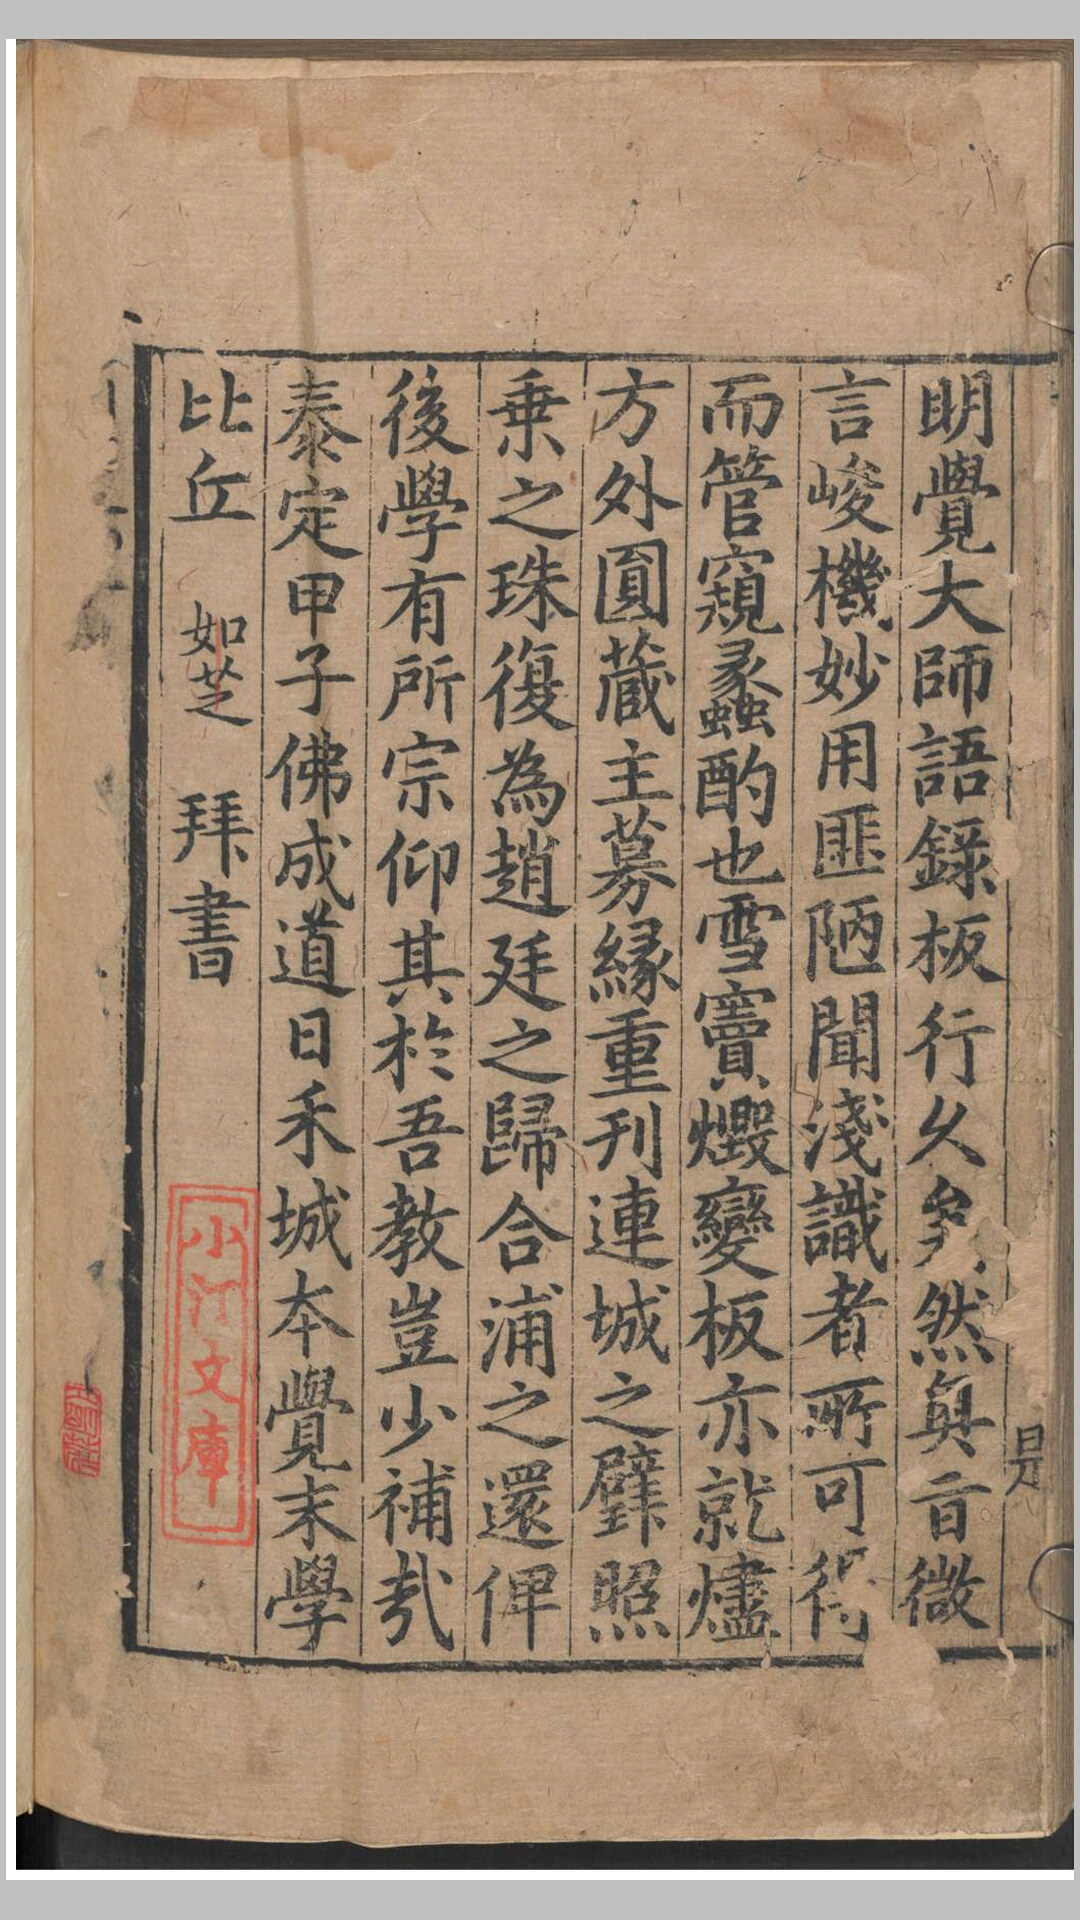 明覺大師語錄板行久矣然眞旨微
言峻機妙用匪陋聞淺識者所可得
而管窺蠡酌也雪竇燬變板亦就燼
方外圓蔵主募縁重刊連城之璧照
乗之珠復為趙廷之歸合浦之還俾
後學有所宗仰其於吾教豈少補㢤
泰定甲子佛成道日禾城本覺末學
比丘 如芝 拜書
小汀文庫